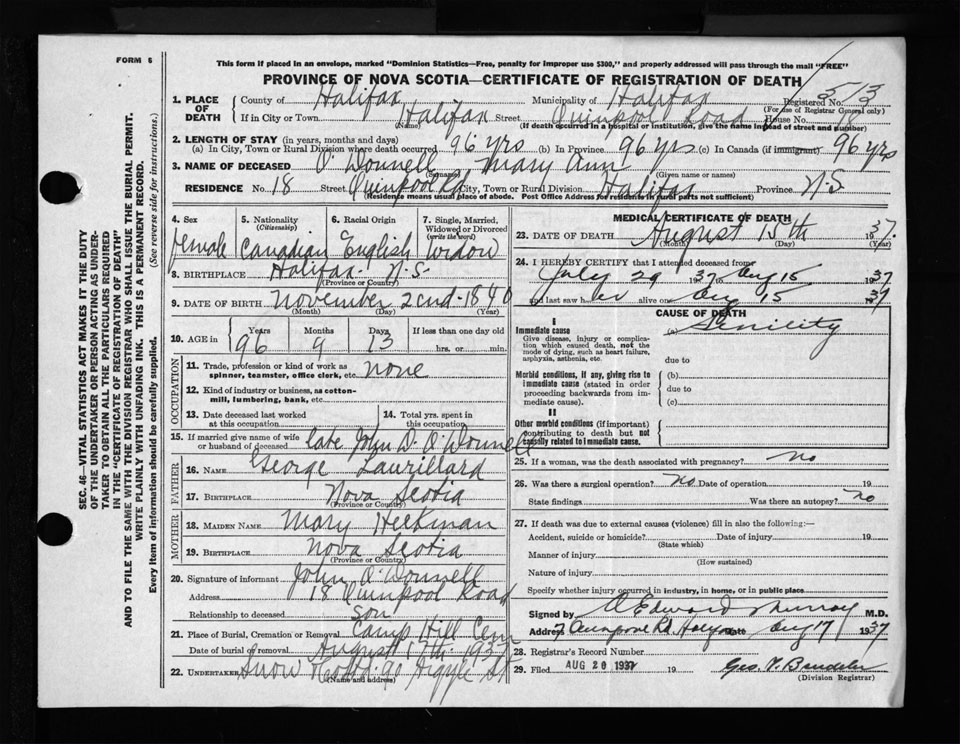 FORM 6
This form if placed in an envelope, marked "Dominion Statistics—Free, penalty for improper use $300," and properly addressed will pass through the mail "FREE"
PROVINCE OF NOVA SCOTIA—CERTIFICATE OF REGISTRATION OF DEATH
1. PLACE OF DEATH
County of Halifax Municipality of Halifax Registered No. 513
(For use of Registrar General only)
If in City or Town Halifax Street Quinpool Road House No. 18
(Name) (If death occurred in a hospital or institution, give the name instead of street and number)
2. LENGTH OF STAY (in years, months and days)
(a) In City, Town or Rural Division where death occurred 96 yrs (b) In Province 96 yrs (c) In Canada (if immigrant) 96 yrs
3. NAME OF DECEASED O'Donnell Mary Ann
(Surname) (Given name or names)
RESIDENCE No. 18 Street Quinpool Rd City, Town or Rural Division Halifax Province N.S.
(Residence means usual place of abode. Post Office Address for residents in rural parts not sufficient)
4. Sex female
5. Nationality (Citizenship) Canadian
6. Racial Origin English
7. Single, Married, Widowed or Divorced (write the word) Widow
8. BIRTHPLACE Halifax N.S.
(Province or Country)
9. DATE OF BIRTH November 22nd 1840
(Month) (Day) (Year)
10. AGE in Years 96 Months 9 Days 13 If less than one day old hrs. or min.
OCCUPATION
11. Trade, profession or kind of work as spinner, teamster, office clerk, etc. none
12. Kind of industry or business, as cotton-mill, lumbering, bank, etc.
13. Date deceased last worked at this occupation
14. Total yrs. spent in this occupation
15. If married give name of wife or husband of deceased late John D. O'Donnell
FATHER
16. NAME George Laurillard
17. BIRTHPLACE Nova Scotia
(Province or Country)
MOTHER
18. MAIDEN NAME Mary Heckman
19. BIRTHPLACE Nova Scotia
(Province or Country)
20. Signature of informant John O'Donnell
Address 18 Quinpool Road
Relationship to deceased Son
21. Place of Burial, Cremation or Removal Camp Hill Cem
Date of burial or removal August 17th 1937
22. UNDERTAKER Snow & Co Ltd. 90 Argyle St
(Name and address)
MEDICAL CERTIFICATE OF DEATH
23. DATE OF DEATH August 15th 1937
(Month) (Day) (Year)
24. I HEREBY CERTIFY that I attended deceased from
July 29 1937 Aug 15 1937
and last saw her alive on Aug 15 1937
CAUSE OF DEATH
I
Immediate cause
Give disease, injury or complication which caused death, not the mode of dying, such as heart failure, asphyxia, asthenia, etc.
(a) Senility
due to
Morbid conditions, if any, giving rise to immediate cause (stated in order proceeding backwards from immediate cause).
(b)
due to
(c)
II
Other morbid conditions (if important) contributing to death but not causally related to immediate cause.
25. If a woman, was the death associated with pregnancy? no
26. Was there a surgical operation? no Date of operation 19
State findings Was there an autopsy? no
27. If death was due to external causes (violence) fill in also the following:—
Accident, suicide or homicide? Date of injury 19
(State which)
Manner of injury
(How sustained)
Nature of injury
Specify whether injury occurred in industry, in home, or in public place
Signed by Edward Murray M.D.
Address Date Aug 17 1937
28. Registrar's Record Number
29. Filed AUG 20 1937 19
(Division Registrar)
SEC. 46—VITAL STATISTICS ACT MAKES IT THE DUTY
OF THE UNDERTAKER OR PERSON ACTING AS UNDER-
TAKER TO OBTAIN ALL THE PARTICULARS REQUIRED
IN THE "CERTIFICATE OF REGISTRATION OF DEATH"
AND TO FILE THE SAME WITH THE DIVISION REGISTRAR WHO SHALL ISSUE THE BURIAL PERMIT.
WRITE PLAINLY WITH UNFADING INK. THIS IS A PERMANENT RECORD.
Every item of information should be carefully supplied. (See reverse side for instructions.)